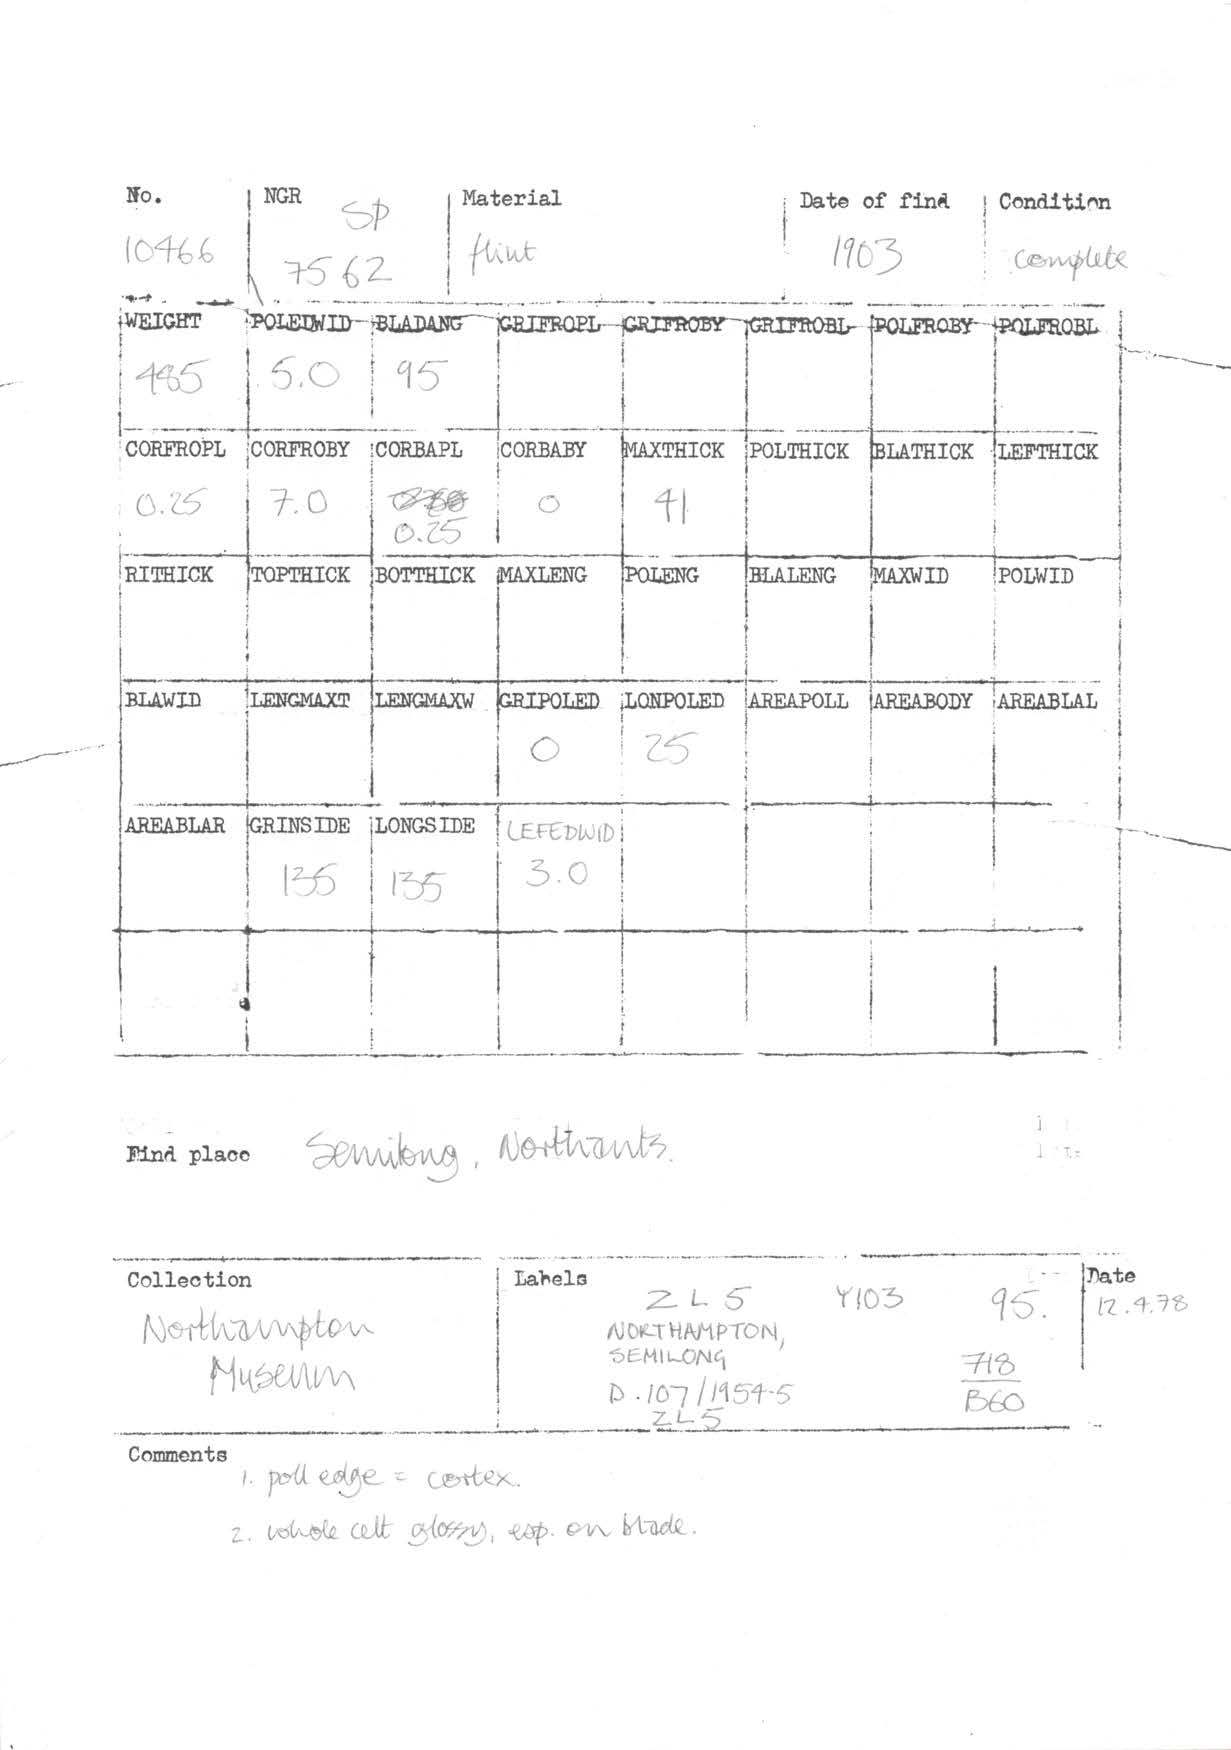 No. NGR Material Date of find Condition
SP
10466 7562 flint 1903 complete
WEIGHT POLEDWID BLADANG GRIFROPL GRIFROBY GRIFROBL POLFROBY POLFROBL
485 5.0 95
CORFROPL CORFROBY CORBAPL CORBABY MAXTHICK POLTHICK BLATHICK LEFTHICK
0.25 7.0 0 41
0.25
RITHICK TOPTHICK BOTTHICK MAXLENG POLENG BLALENG MAXWID POLWID
BLAWID LENGMAXT LENGMAXW GRIPOLED LONPOLED AREAPOLL AREABODY AREABLAL
0 25
AREABLAR GRINSIDE LONGSIDE LEFEDWID
135 135 3.0
Find place Semilong, Northants.
Collection Labels Date
ZL5 Y103 95. 12.4.78
Northampton
Museum
NORTHAMPTON,
SEMILONG
D.107/1954-5
ZL5
718
B60
Comments
1. poll edge = cortex.
2. whole celt glossy, esp. on blade.